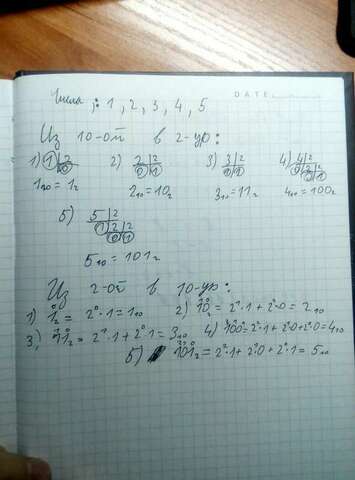 DATE:
Числа: 1, 2, 3, 4, 5
Из 10-ой в 2-ур:
1) 1 | 2 2) 2 | 2 3) 3 | 2 4) 4 | 2
0 0 1 1 1 0 2 2 0 1
1₁₀ = 1₂ 2₁₀ = 10₂ 3₁₀ = 11₂ 4₁₀ = 100₂
5) 5 | 2
1 2 2
0 1
5₁₀ = 101₂
Из 2-ой в 10-ур:
1) 1₂ = 2⁰·1 = 1₁₀ 2) 10₂ = 2¹·1 + 2⁰·0 = 2₁₀
3) 11₂ = 2¹·1 + 2⁰·1 = 3₁₀ 4) 100₂ = 2²·1 + 2¹·0 + 2⁰·0 = 4₁₀
5) 101₂ = 2²·1 + 2¹·0 + 2⁰·1 = 5₁₀